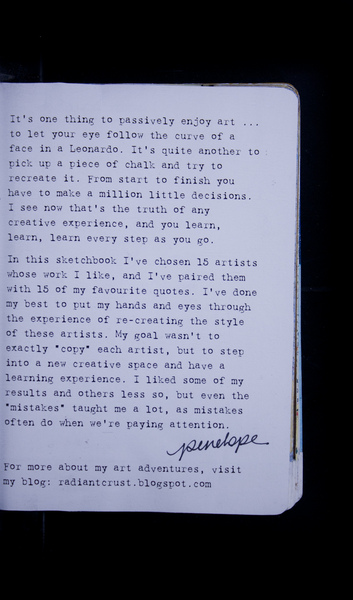 It's one thing to passively enjoy art ...
to let your eye follow the curve of a
face in a Leonardo. It's quite another to
pick up a piece of chalk and try to
recreate it. From start to finish you
have to make a million little decisions.
I see now that's the truth of any
creative experience, and you learn,
learn, learn every step as you go.
In this sketchbook I've chosen 15 artists
whose work I like, and I've paired them
with 15 of my favourite quotes. I've done
my best to put my hands and eyes through
the experience of re-creating the style
of these artists. My goal wasn't to
exactly "copy" each artist, but to step
into a new creative space and have a
learning experience. I liked some of my
results and others less so, but even the
"mistakes" taught me a lot, as mistakes
often do when we're paying attention.
penelope
For more about my art adventures, visit
my blog: radiantcrust.blogspot.com